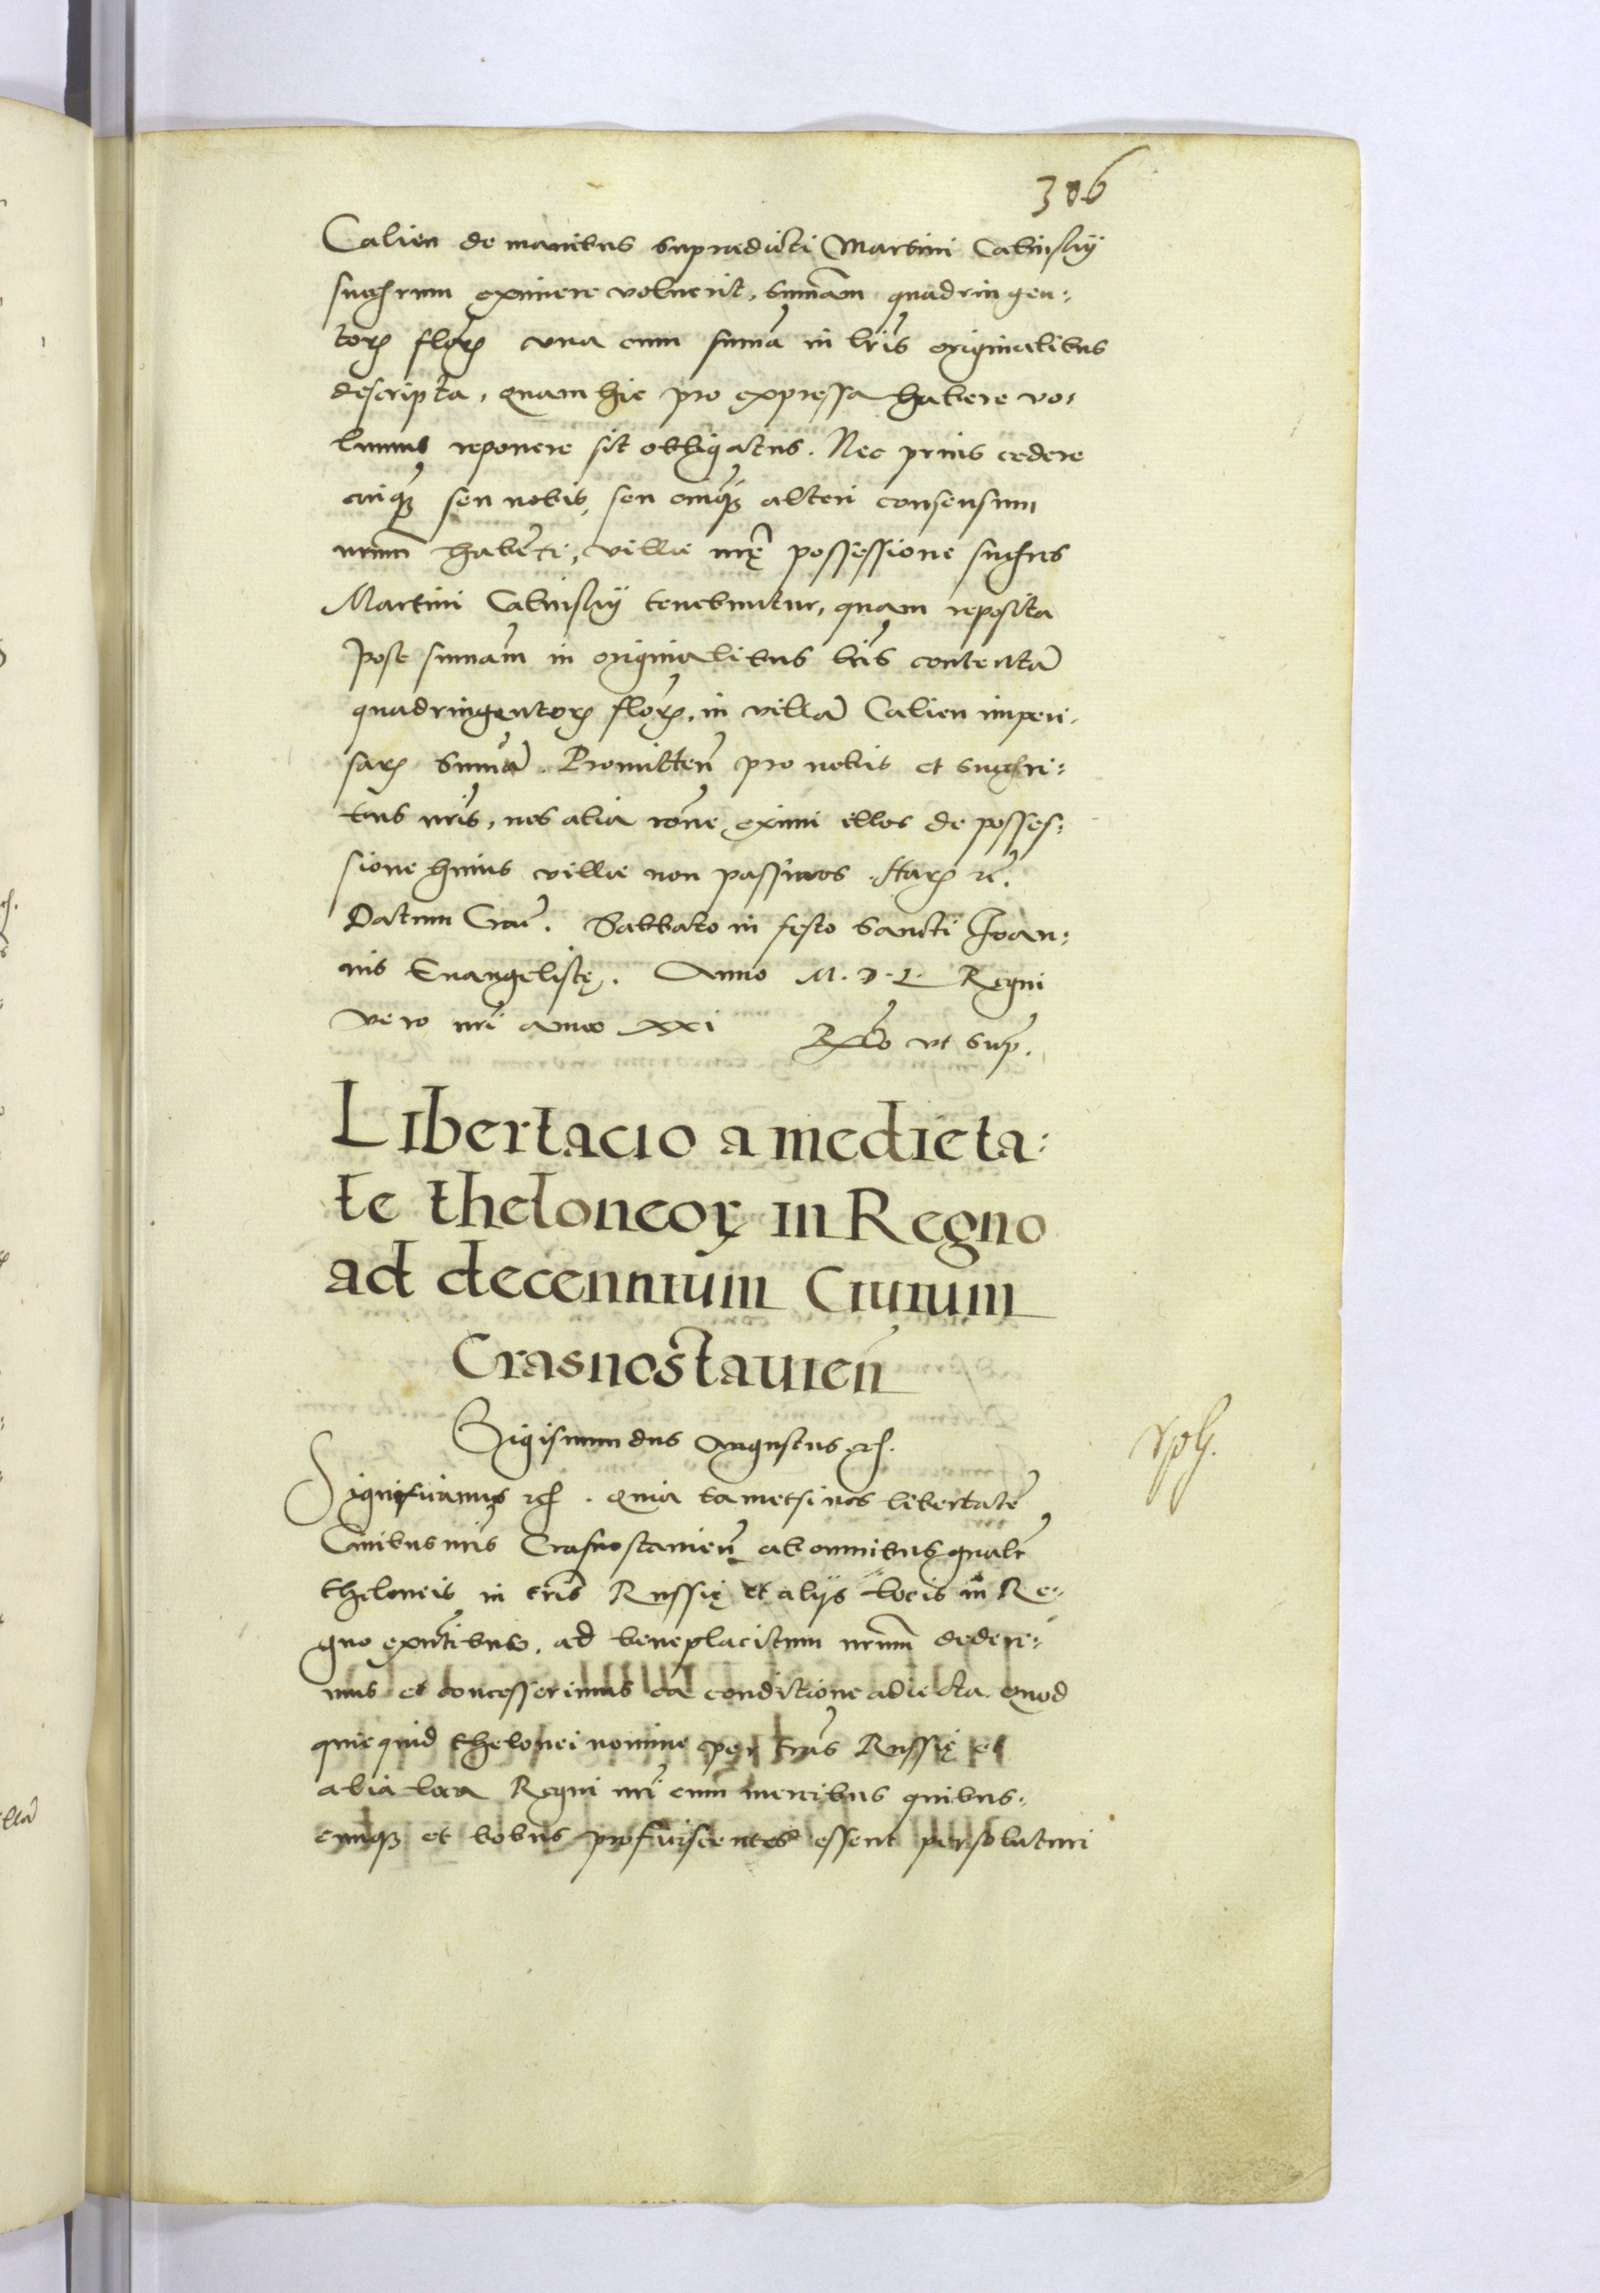 306
Calien de manibus supradicti Martini Cabinskÿ
suorum eximere voluerit, summam quadringen:
torꝝ florꝝ vna cum suma in lrīs originalibus
descripta, quam hic pro expressa habere vo:
lumus reponere sit obligatus. Nec prius cedere
cuiqꝫ seu nobis, seu cuiqꝫ alteri consensum
nrūm habēti, ville nrę possessione
Martini Cabinskÿ tenebuntur, quam reposita
post sumam in originalibus lrīs contentā
quadringentorꝝ florꝝ. in villā Calien impen:
sarꝝ sumā. Promitteñ pro nobis et
nrīs, nos alia rōne eximi illos de posses:
sione huius ville non passuros. Harꝝ rē.
Datum Craē. Sabbato in festo Sancti Joan:
nis Euangelistę. Anno M.D.L. Regni
vero nrī anno xxi Relō vt sup̄.
Libertacio a medieta:
te theloneorꝝ in Regno
ad decennium Ciuium
Crasnostauieñ
Sigismundus Augustus rc̄.
Significamus rc̄. Quia tametsi nos libertatē
Ciuibus nrīs Crasnostauieñ ab omnibus gnalr̄
theloneis in trīs Russię et alijs locis in Re:
gno exn̄tibus, ad beneplacitum nrūm dedere:
mus et concesserimus ea conditione adiecta. Quod
quicquid thelonei nomine per trās Russię et
alia loca Regni nrī cum mercibus quibus:
cunqꝫ et bobus proficiscentes essent persoluturi